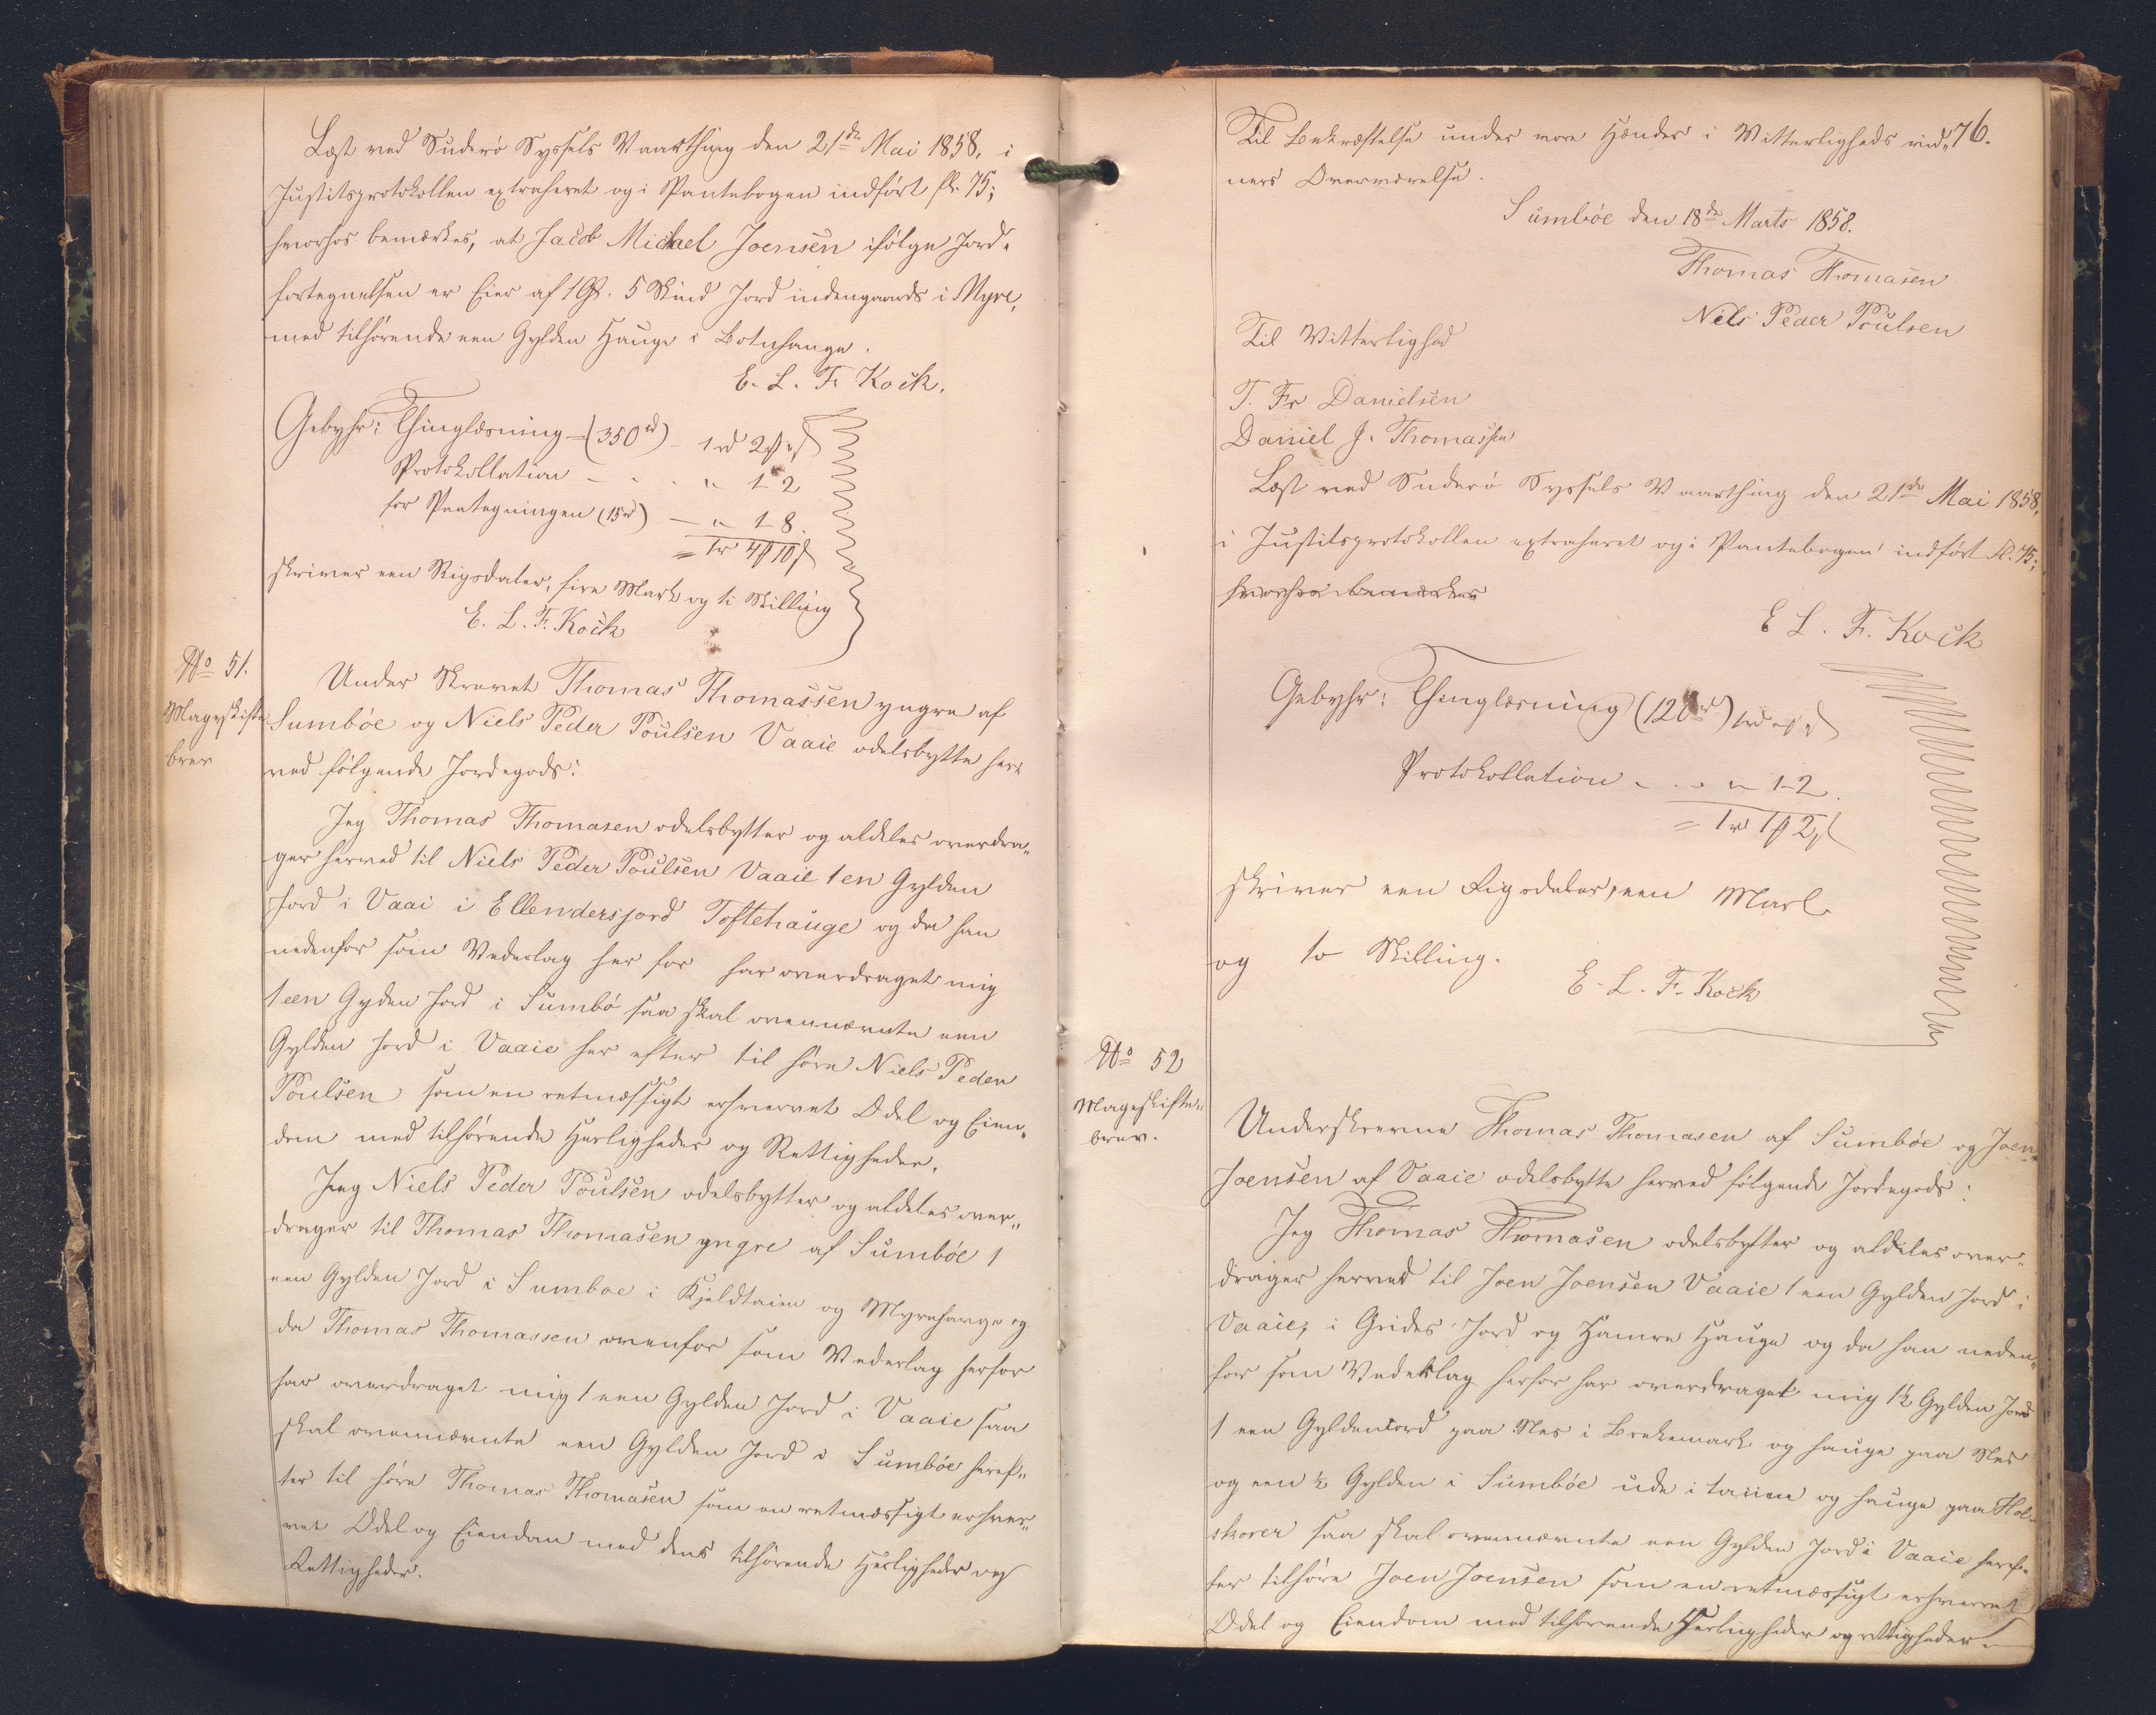 Læst ved Suderø Syssels Vaarthing den 21de Mai 1858, i
Justitsprotokollen extraheret og i Pantebogen indført fl. 75;
hvorhos bemærkes, at Jacob Michael Joensen ifølge Jord-
fortegnelsen er Eier af 1 G. 5 Skind Jord indengaards i Myre,
med tilhørende een Gylden Hauge i Botnhauge.
E. L. F. Kock.
Gebyhr: Thinglæsning (350rd) 1 rd 2 ß
Protokollation - . . " 1 2
for Paategningen (15rd) — " 1 8.
= 1rd 4ß 10s
skriver een Rigsdaler, fire Mark og ti Skilling
E. L. F. Kock
No 51.
Mageskifte
brev
Under Skrevet Thomas Thomassen yngre af
Sumbøe og Niels Peder Poulsen Vaaie odelsbytte her-
ved følgende Jordegods:
Jeg Thomas Thomasen odelsbytter og aldeles overdra„
ger herved til Niels Peder Poulsen Vaaie 1 en Gylden
Jord i Vaai i Ellendersjord Toftehauge og da han
nedenfor som Vederlag her for har overdraget mig
1 een Gyden Jord i Sumbø saa skal ovennævnte een
Gylden Jord i Vaaie her efter til høre Niels Peder
Poulsen som en retmæssigt erhvervet Odel og Eien„
dom med tilhørende Herligheder og Rettigheder.
Jeg Niels Peder Poulsen odelsbytter og aldeles over„
drager til Thomas Thomasen yngre af Sumbøe 1
een Gylden Jord i Sumboe i Kjeldtaien og Myrehauge og
da Thomas Thomassen ovenfor som Vederlag herfor
har overdraget mig 1 een Gylden Jord i Vaaie saa
skal ovennævnte een Gylden Jord i Sumbøe heref„
ter til høre Thomas Thomasen som en retmæssigt erhver„
vet Odel og Eiendom med dens tilhørende Herligheder og
Rettigheder.
76.
Til Bekræftelse under vore Hænder i Vitterligheds vid„
ners Overværelse.
Sumbøe den 18de Marts 1858.
Thomas Thomasen
Niels Peder Poulsen
Til Vitterlighed
T. Fr Danielsen
Daniel J. Thomassen
Læst ved Suderø Syssels Vaarthing den 21de Mai 1858,
i Justitsprotokollen extraheret og i Pantebogen indført fl. 75;
hvorhos bemærkes
E L. F. Kock
Gebyhr: Thinglæsning (120rd) 1rd " ß "
Protokollation - . . " 1-2.
= 1rd 1ß 2s
skriver een Rigsdaler, een Mark
og to Skilling.
E. L. F. Kock
No 52
Mageskifte„
brev.
Underskrevne Thomas Thomasen af Sumbøe og Joen
Joensen af Vaaie odelsbytte herved følgende Jordegods:
Jeg Thomas Thomasen odelsbytter og aldeles over„
drager herved til Joen Joensen Vaaie 1 een Gylden Jord i
Vaaie; i Grides Jord og Hamre Hauge og da han neden„
for som Vederlag herfor har overdraget mig 1½ Gylden Jord
1 een Gylden Jord paa Nes i Brekemark og hauge paa Nes
og een ½ Gylden i Sumbøe ude i taiien og hauge paa Hol-
skorer saa skal ovennævnte een Gylden Jord i Vaaie heref-
ter tilhøre Joen Joensen som en retmæssigt erhvervet
Odel og Eiendom med tilhørende Herligheder og rettigheder.